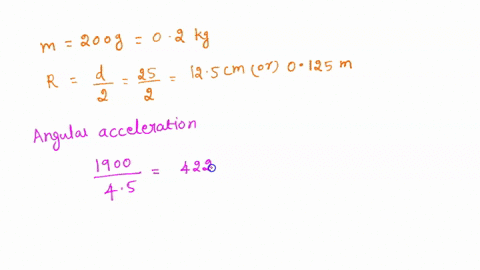 m = 200g = 0.2 kg
R = d/2 = 25/2 = 12.5 cm (or) 0.125 m
Angular acceleration
1900/4.5 = 422